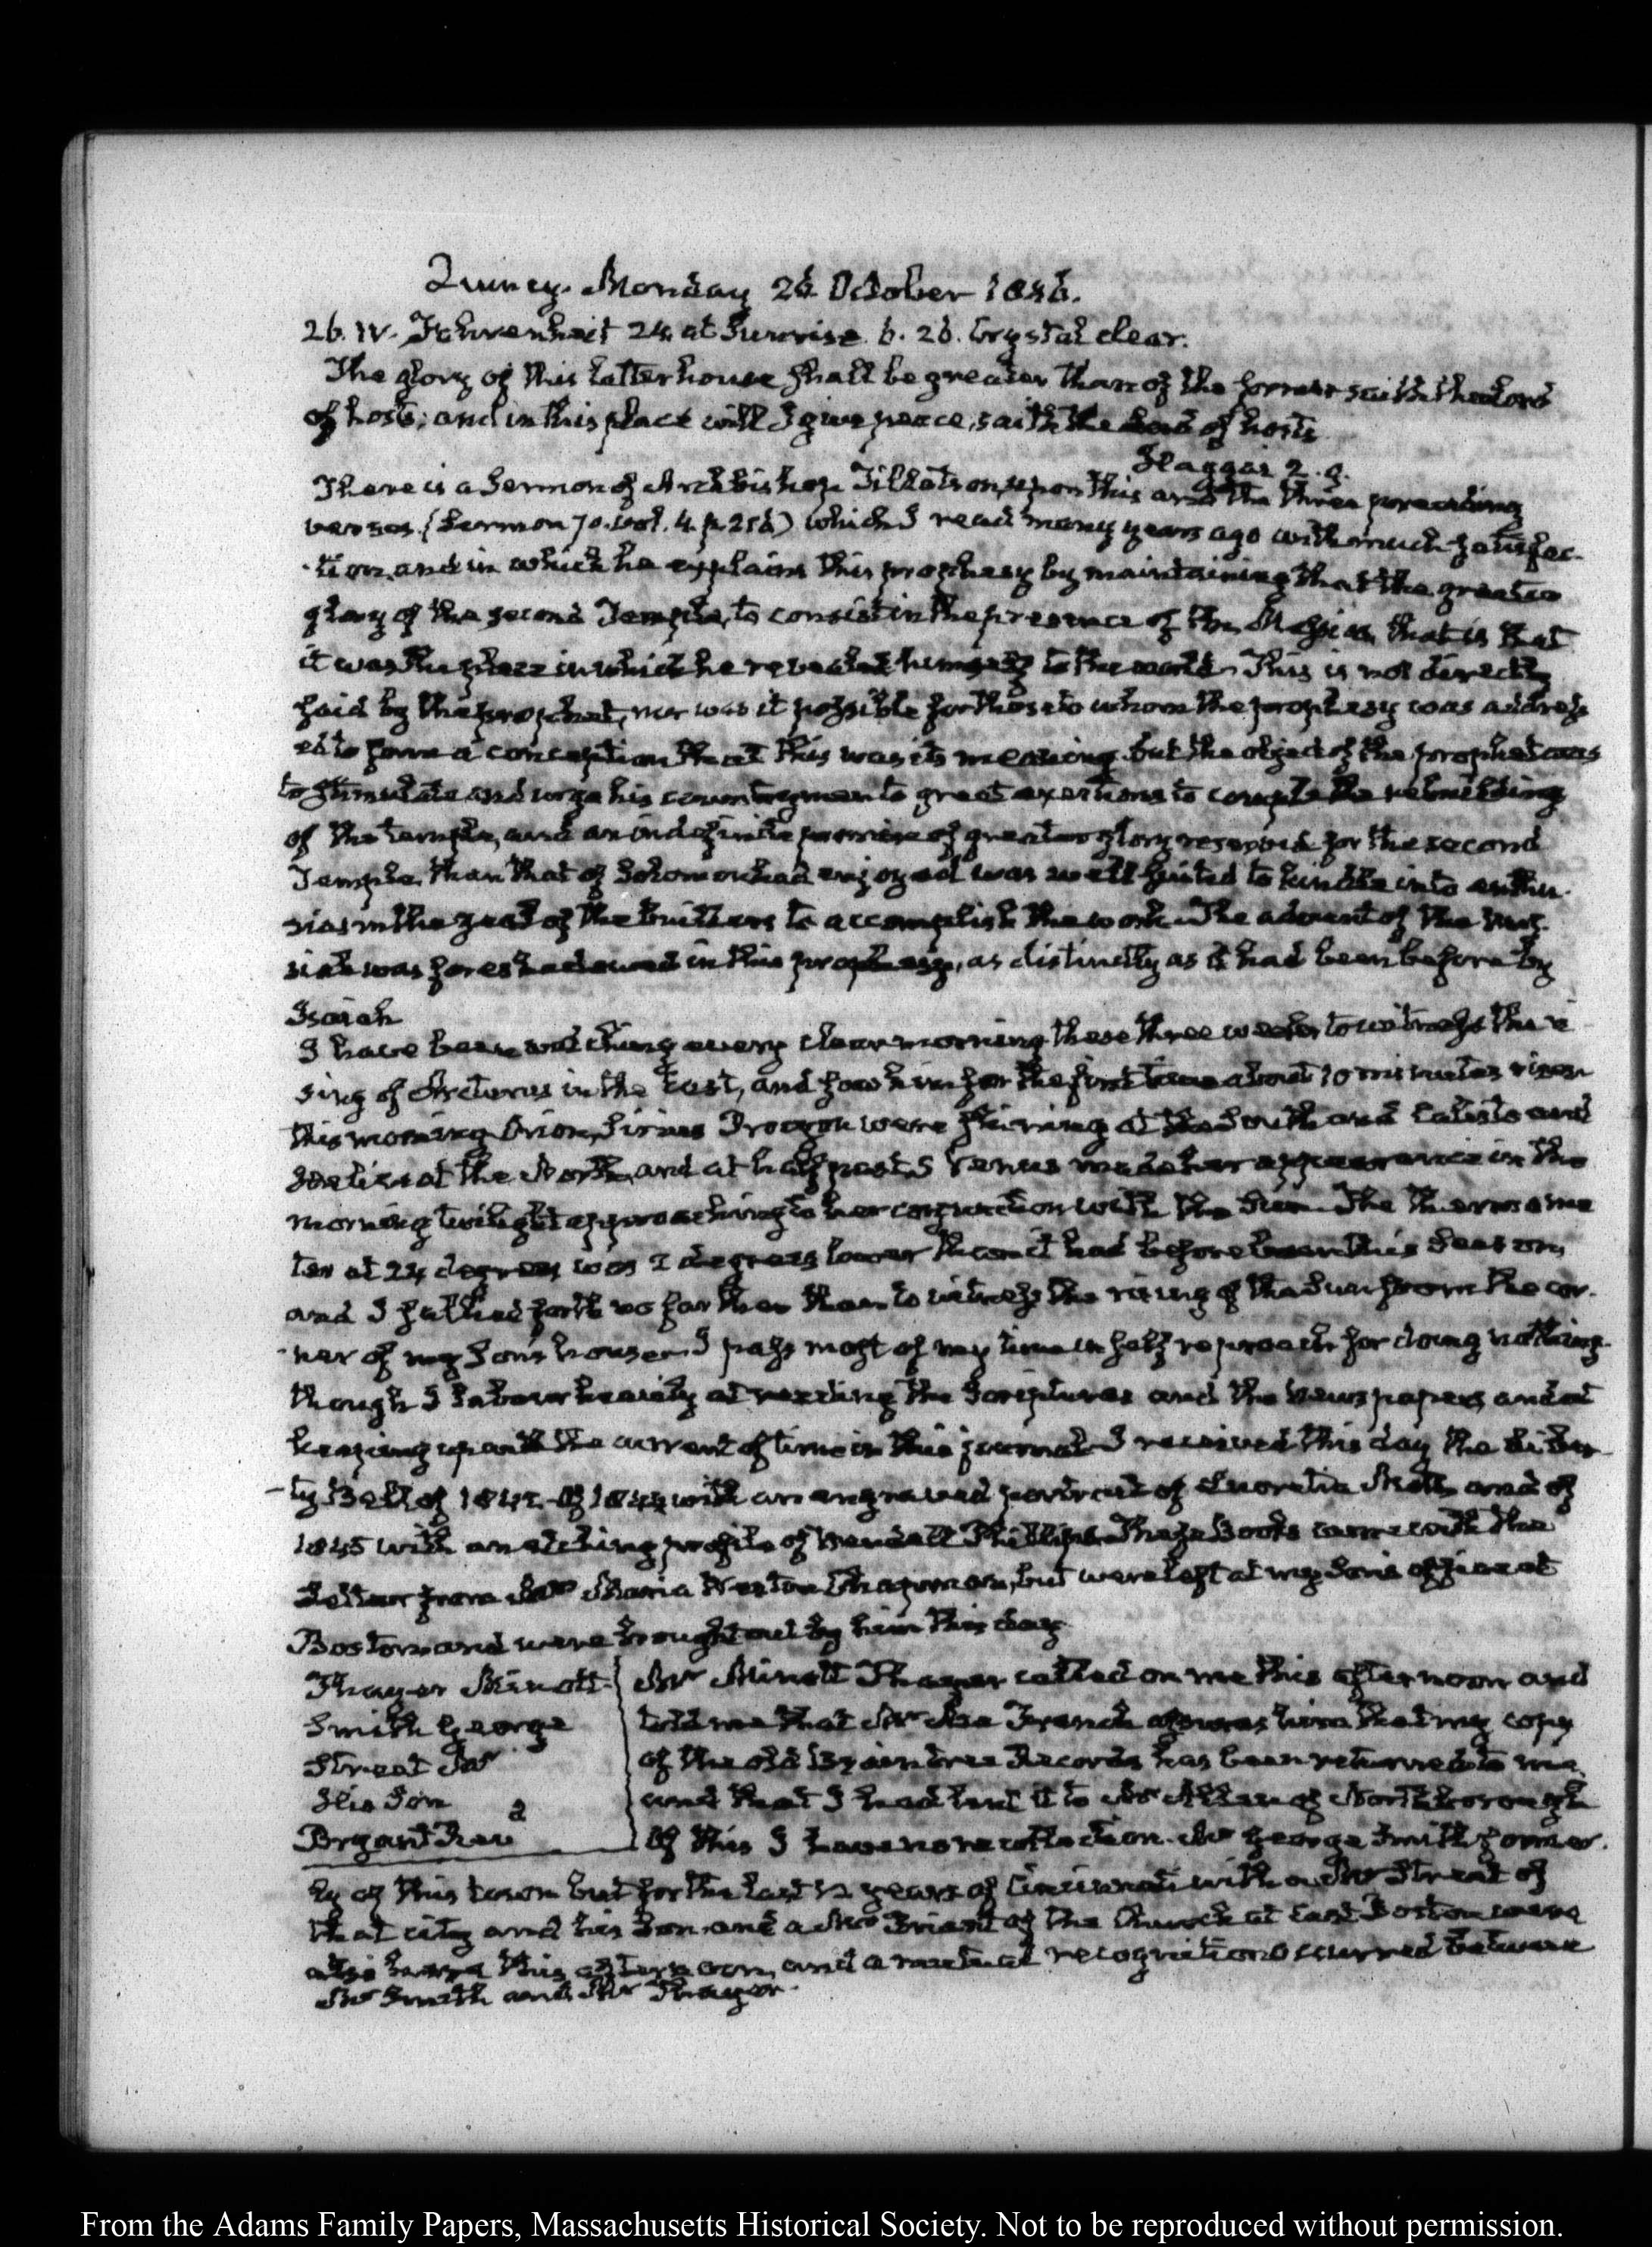 Quincy. Monday 26. October 1846.
26. IV. Fahrenheit 24. at Sunrise. 6. 26. Crystal clear.
The glory of this latter house shall be greater than of the former saith the Lord
of hosts; and in this place will I give peace, saith the Lord of hosts
Haggai 2. 9.
There is a Sermon of Archbishop Tillotson, upon this and the three preceding
verses. (Sermon 70. vol. 4. p. 256) which I read many years ago with much satisfac-
-tion, and in which he explains this prophesy by maintaining that the greater
glory of the second Temple, to consist in the presence of the Messiah, that is that
it was the place in which he revealed himself to the world. This is not directly
said by the prophet, nor was it possible for those to whom the prophesy was address
ed to form a conception that this was its meaning. but the object of the prophet was
to stimulate and urge his countrymen to great exertions to complete the rebuilding
of the temple, and an indefinite promise of greater glory reserved for the second
Temple, than that of Solomon had enjoyed was well suited to kindle into enthu-
siasm the zeal of the builders to accomplish the work. The advent of the Mes-
siah was foreshadowed in this prophesy, as distinctly as it had been before by
Isaiah
I have been watching every clear morning these three weeks to witness the ri
sing of Arcturus in the East, and saw him for the first time about 10 minutes risen
this morning. Orion, Sirius Procyon were shining at the South and and
at the North, and at half past 5 Venus made her appearance in the
morning twilight approaching to her conjunction with the Sun. The thermome
ter at 24 degrees was 2 degrees lower than it had before been this season,
and I sallied forth no farther than to witness the rising of the Sun from the cor-
-ner of my Son's house. I pass most of my time in self reproach for doing nothing
though I labour heavily at reading the Scriptures and the Newspapers and at
keeping up with the current of time in this journal. I received this day the Liber-
-ty Bell of 1842. of 1844 with an engraved portrait of Lucretia Mott and of
1845 with an etching profile of Wendall Phillips. These Books came with the
Letter from Mrs Maria Weston Chapman, but were left at my Son's office at
Boston and were brought out by him this day
Thayer Minott Mr Minott Thayer called on me this afternoon and
Smith George told me that Mr Asa French assures him that my copy
Streat Mr of the old Braintree Records has been returned to me,
His Son and that I had lent it to Mr Allen of Northborough
Bryant Revd Of this I have no recollection. Mr George Smith former-
ly of this town but for the last 12 years of Cincinnati with a Mr Streat of
that city and his Son and a Mr Briant of the Church at East Boston were
also here this afternoon, and a mutual recognition occurred between
Mr Smith and Mr Thayer.
From the Adams Family Papers, Massachusetts Historical Society. Not to be reproduced without permission.